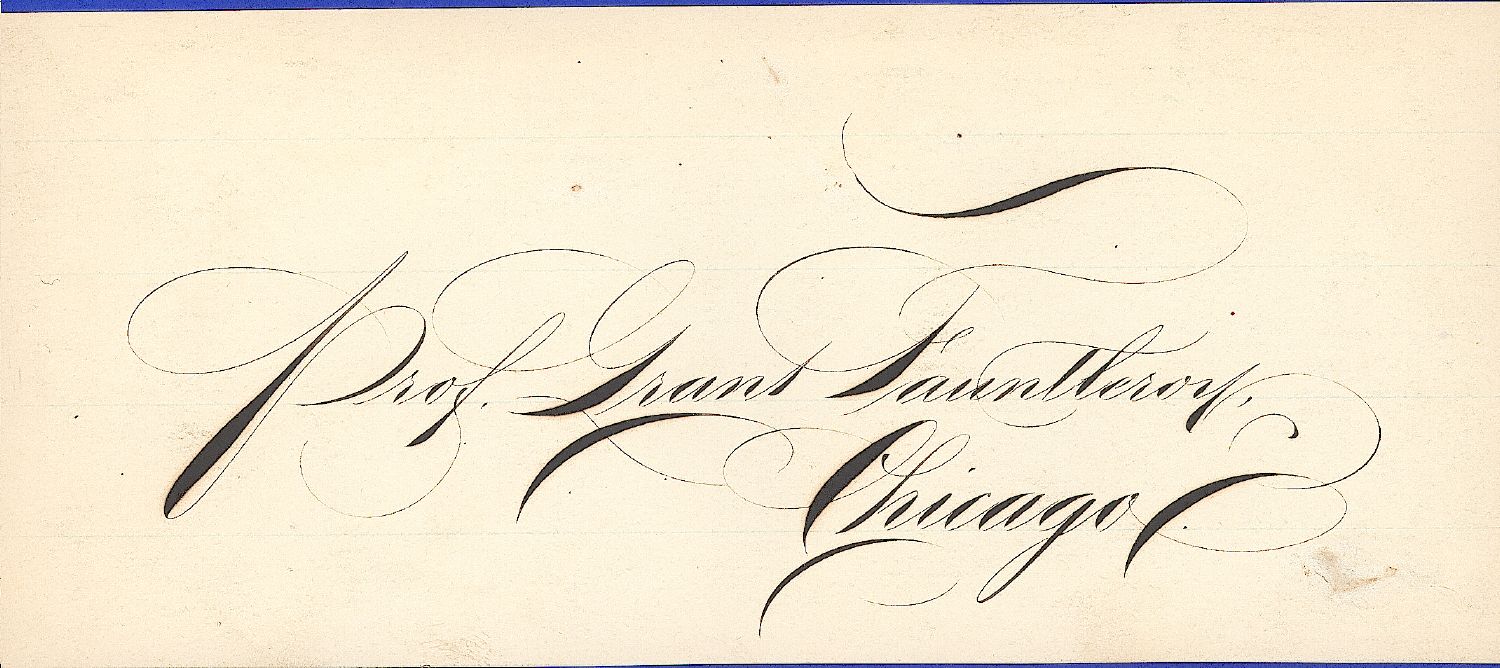 Prof. Grant Fauntleroy,
Chicago